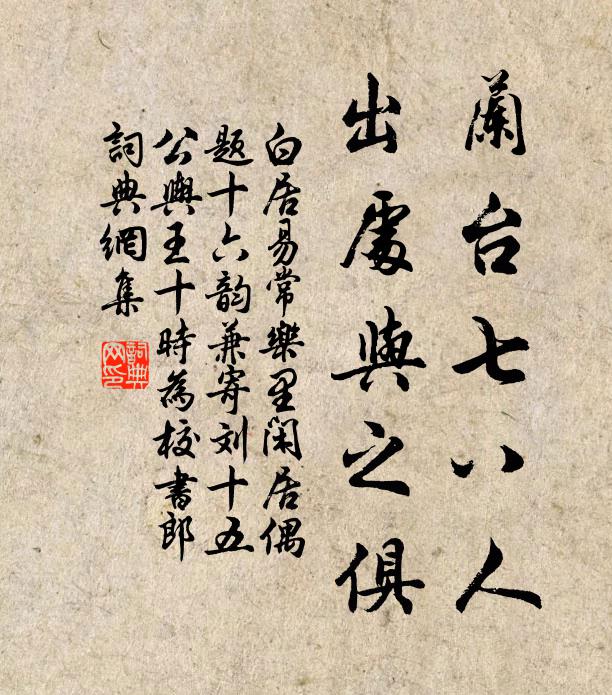 蘭台七八人
出處與之俱
白居易常樂里閑居偶
題十六韵兼寄刘十五
公輿王十時為校書郎
詞典網集
詞典網印